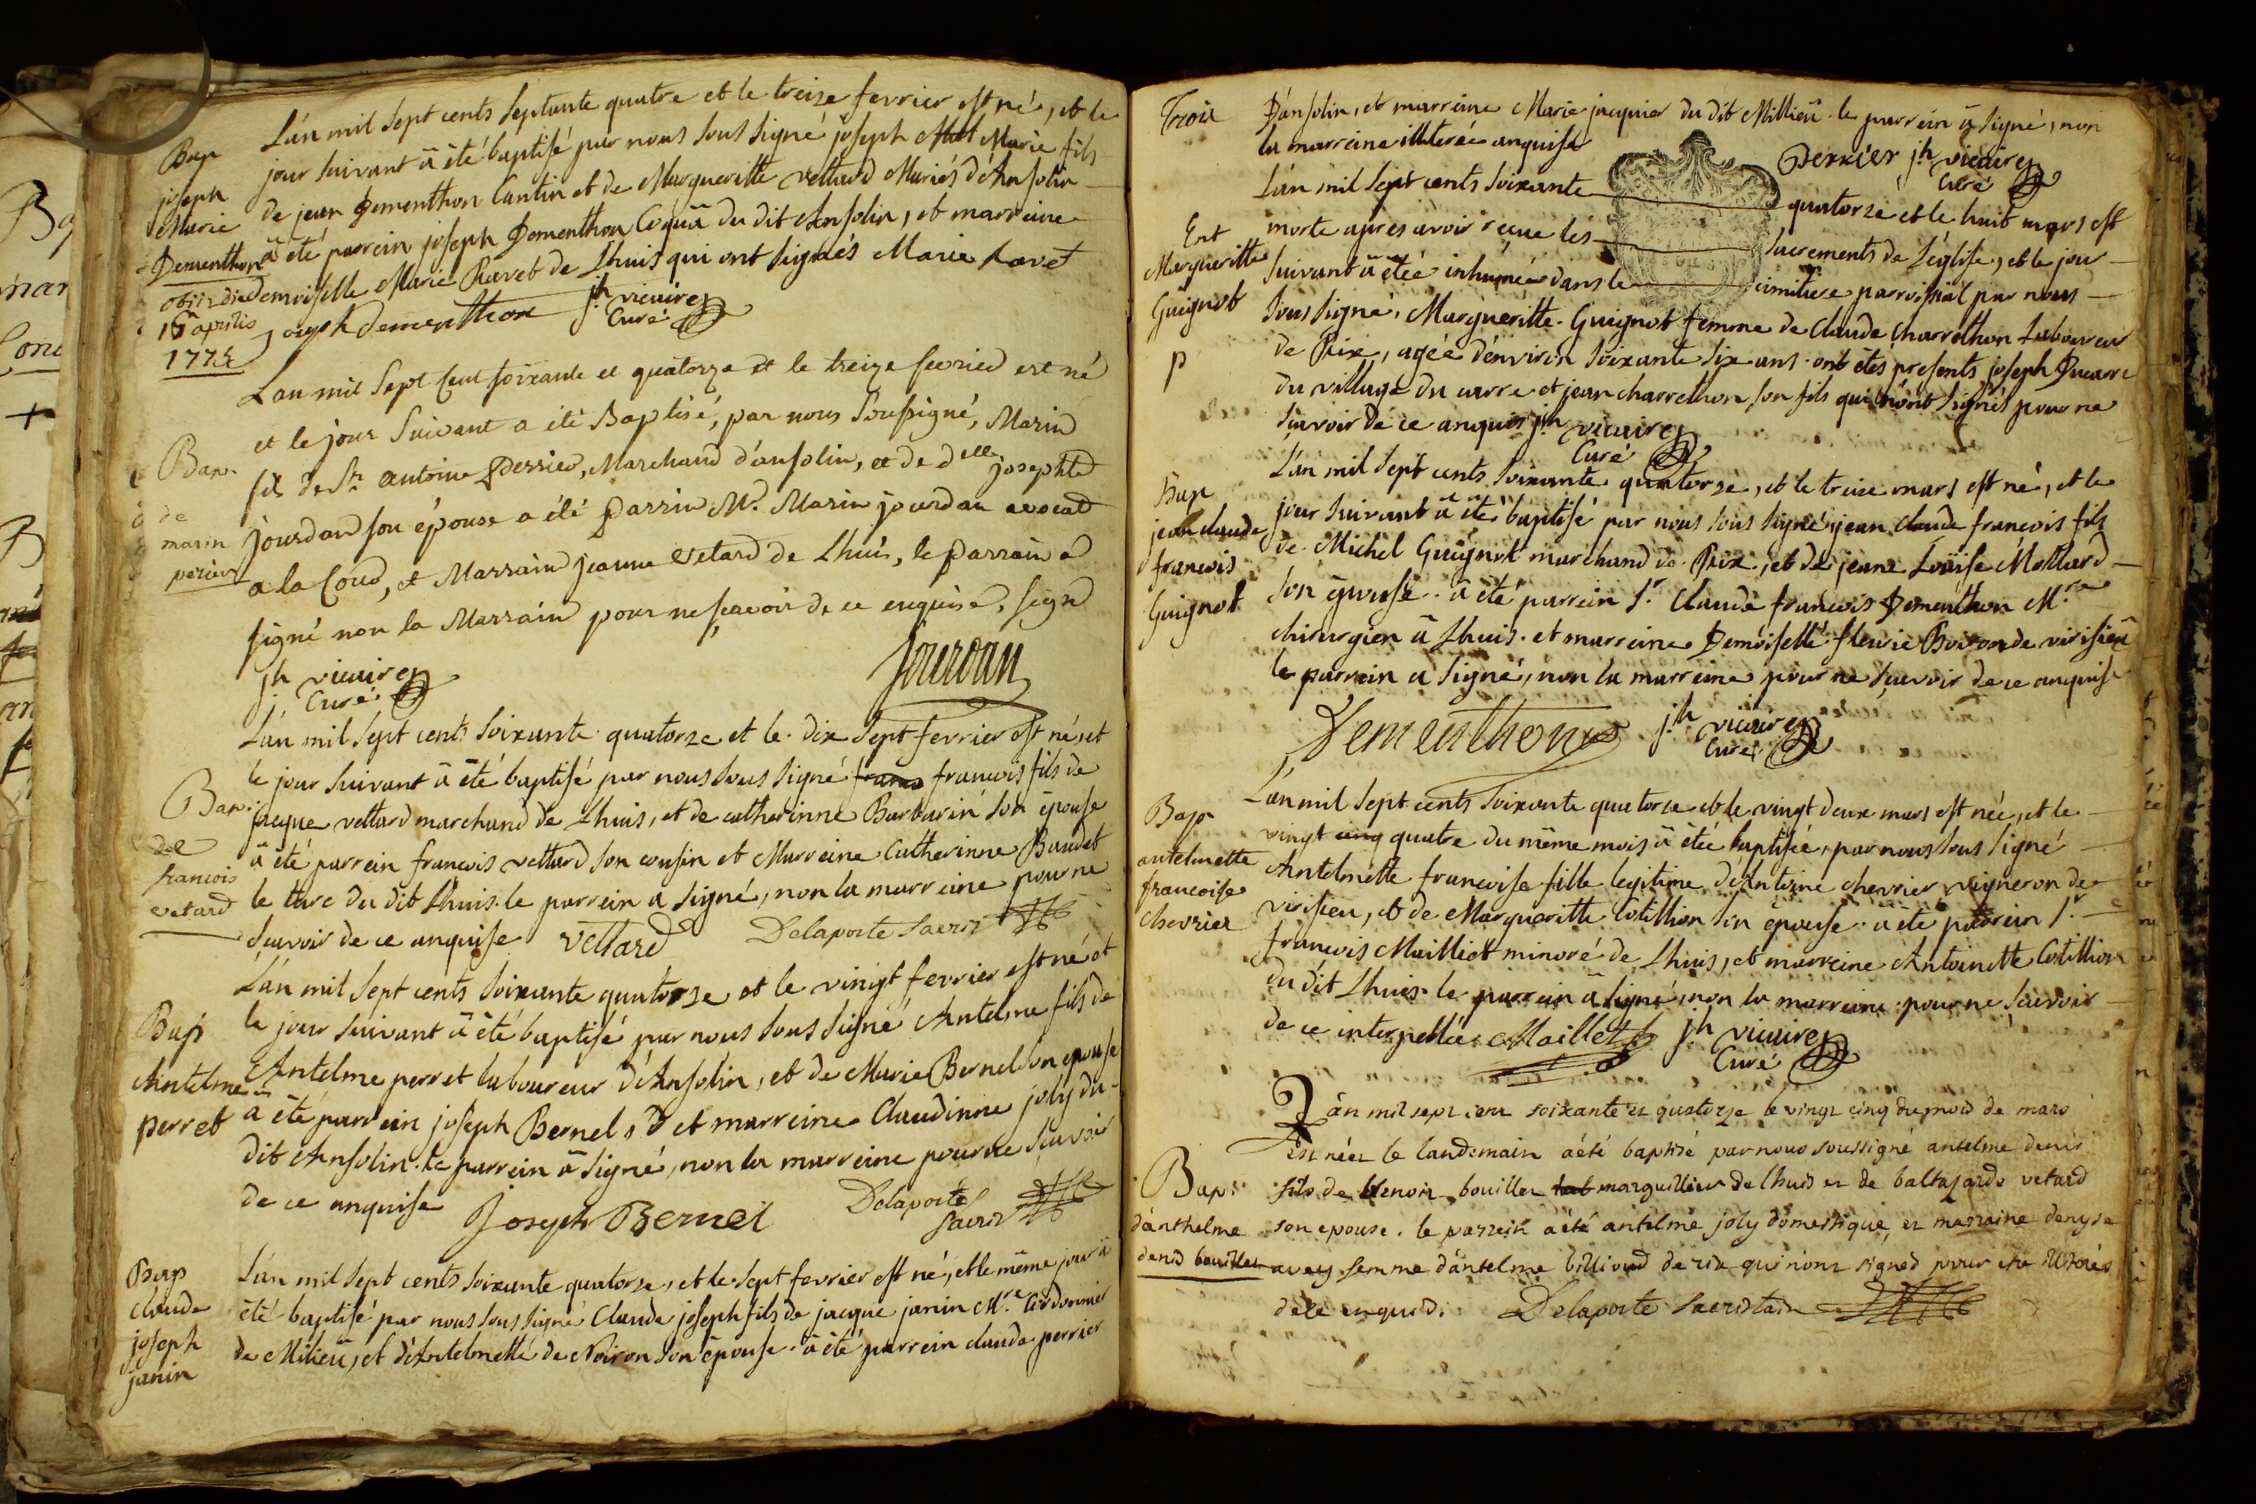 Bap
joseph
Marie
Dementhon
obiit die
16 aprilis
1774
L'an mil sept cents septante quatre et le treize fevrier est né, et le
jour suivant â êté baptisé par nous sous signé joseph Marie fils
de jean Dementhon Cantin et de Margueritte vettard Mariés d'Ansolin
â êté parrein joseph Dementhon Coquâ du dit Ansolin, et marreine
Demoiselle Marie Ravet de Lhuis qui ont signés Marie Ravet
joseph dementhon jh vicaire
Curé
Bap.
de
marin
perier
L'an mil sept cent soixante et quatorze et le treize fevrier est né
et le jour suivant a été Baptisé, par nous soussigné, Marin
fils de Sr antoine Perrier, Marchand d'ansolin, et de dlle josephte
jourdan son épouse a été parrin Mr. Marin jourdan avocat
a la Cour, et Marrain jeanne vetard de Lhuis, le parrain a
signé non la Marrain pour ne sçavoir de ce enquise, 
jh vicaire
Curé
Jourdan
Bap.
de
francois
vetard
L'an mil sept cents soixante quatorze et le dix sept fevrier est né, et
le jour suivant â êté baptisé par nous sous signé francois fils de
jacque vettard marchand de Lhuis, et de catherinne Barbarin son épouse
â êté parrein francois vettard son cousin et Marreine Catherinne Baudet
le tarc du dit Lhuis. le parrein a signé, non la marreine pour ne
scavoir de ce anquise Vettard Delaporte sacris
Bap
Antelme
perret
L'an mil sept cents soixante quatorze et le vingt fevrier est né et
le jour suivant â êté baptisé par nous sous signé Antelme fils de
Antelme perret laboureur d'Ansolin, et de Marie Bernel son epouse
â êté parrein joseph Bernel, et marreine Claudinne joly du
dit Ansolin. le parrein â signé, non la marreine pour ne scavoir
de ce anquise Joseph Bernel Delaporte
sacris
Bap
Claude
joseph
janin
L'an mil sept cents soixante quatorze, et le sept fevrier est né, et le même jour â
êté baptisé par nous sous signé Claude joseph fils de jacque janin Mre Cordonnier
de Milieu, et d'Antelmette de Noiron son épouse. â êté parrein claude perrier
Trois
D'ansolin, et marreine Marie jacquier du dit Millieu. le parrein â signé, non
la marreine illiterée anquise
Perrier jh vicaire
Curé
Ent
Margueritte
Guignot
p
L'an mil sept cents soixante quatorze et le huit mars est
morte apres avoir recue les sacrements de L'église, et le jour
suivant â êtée inhumée dans le cimitiere parroissial par nous
sous signé, Margueritte Guignot femme de Claude Charrethon Laboureur
de Rix, agée d'environ soixante six ans. ont êtes presents joseph Ducarre
du village du carre et jean charrethon son fils qui n'ont signés pour ne
scavoir de ce anquis jh vicaire
Curé
Bap
jean claude
francois
Guignot
L'an mil sept cents soixante quatorze, et le treize mars est né, et le
jour suivant â êté baptisé par nous sous signé jean claude francois fils
de Michel Guignot marchand de Rix, et de jeane Loüise Mollard
son épouse. â êté parrein Sr. Claude francois Dementhon Mre
chirurgien â Lhuis. et marreine Demoiselle fleurie Boiron de virisieu
le parrein a signé, non la marreine pour ne scavoir de ce anquise
Dementhon jh vicaire
Curé
Bap
antelmette
francoise
chevrier
L'an mil sept cents soixante quatorze et le vingt deux mars est née, et le
vingt cinq quatre du même mois â êtée baptisée, par nous sous signé
Antelmette francoise fille legitime d'Antoine chevrier vigneron de
virisieu, et de Margueritte Cotillion son épouse. â êté parrein Sr.
francois Mailliet minoré de Lhuis, et marreine Antoinette Cotillion
du dit Lhuis. le parrein â signé, non la marreine pour ne scavoir
de ce interpellée Maillet jh vicaire
Curé
Bap.
d'anthelme
denis bouiller
L'an mil sept cent soixante et quatorze le vingt cinq du mois de mars
est né et le landemain a été baptisé par nous soussigné antelme denis
fils de benoit bouiller marguillier de lhuis et de baltazarde vetard
son epouse. le parrein a été antelme joly domestique, et marraine denyse
avey femme d'antelme billioud de rix qui n'ont signed pour etre illiterés
de ce enquis. Delaporte sacristain